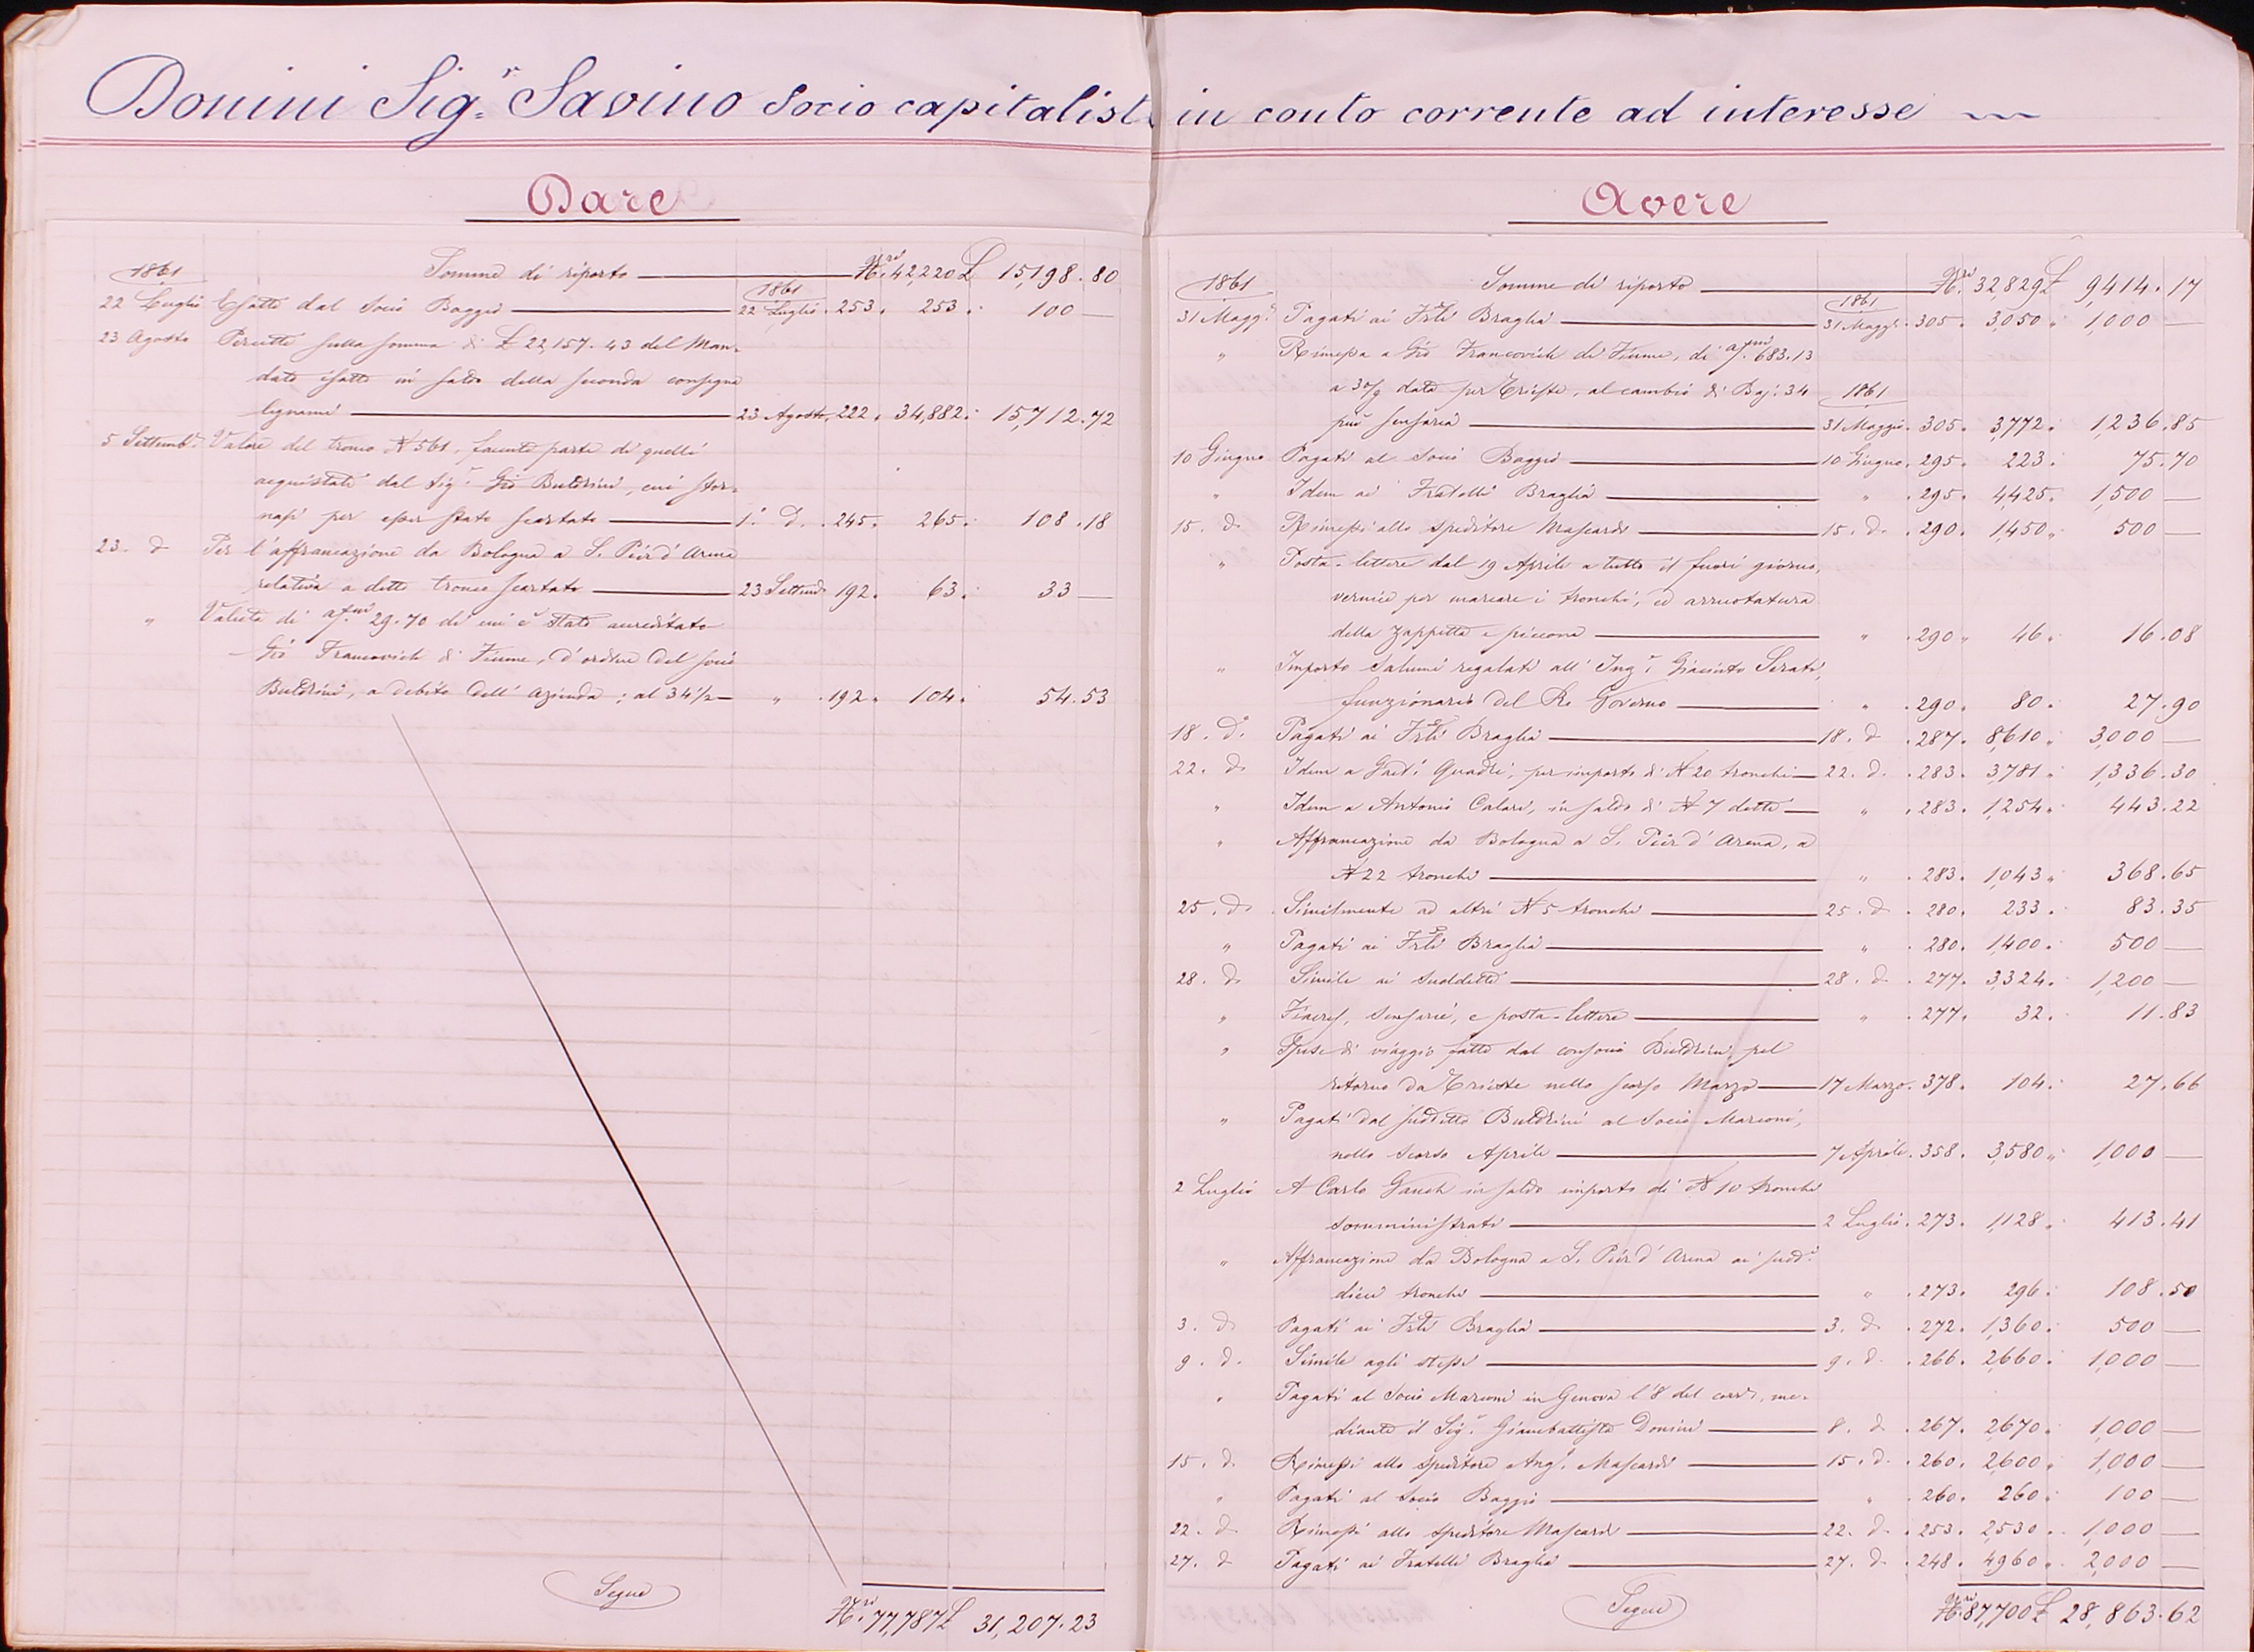 Donini Sig.r Savino Socio capitalista in conto corrente ad interesse
Dare
1861 Somme di riporto N.ri 42,220 £ 15,198.80
22 Luglio Esatte dal Socio Baggio 1861 22 Luglio. 253. 253. 100 —
23 Agosto Percette sulla somma di £ 22,157.43 del Man-
dato esatto in saldo della seconda consegna
legnami 23 Agosto. 222. 34,882. 15,712.72
5 Settemb.e Valore del tronco N 561, facente parte di quelli
acquistati dal Sig.r Gio Buldrini, cui stor-
nasi per esser stato scartato 1.o d. 245. 265. 108.18
23. d Per l'affrancazione da Bologna a S. Pier d'Arena
relativa a detto tronco scartato 23 Settemb. 192. 63. 33 —
" Valuta di af.ni 29.70 di cui è stato accreditato
Gio Francovich di Fiume, d'ordine del socio
Buldrini, a debito dell'azienda; al 34 1/2 " 192. 104. 54.53
Segue
N.ri 77,787 £ 31,207.23
Avere
1861 Somme di riporto N.ri 32,829 £ 9,414.17
31 Magg.o Pagati ai F.lli Braglia 1861 31 Magg.o 305. 3,050. 1,000 —
" Rimessa a Gio Francovich di Fiume, di af.ni 683.13
a 30/g data per Trieste, al cambio di Baj. 34
più senseria 1861 31 Maggio. 305. 3,772. 1,236.85
10 Giugno Pagati al Socio Baggio 10 Giugno. 295. 223. 75.70
" Idem ai Fratelli Braglia " 295. 4,425. 1,500 —
15. d Rimessi allo speditore Mascardi 15. d. 290. 1,450. 500 —
" Posta-lettere dal 19 Aprile a tutto il fuori giorno,
vernice per marcare i tronchi, ed arruotatura
della zappetta e piccona " 290. 46. 16.08
" Importo salumi regalati all'Ing.r Giacinto Serati,
funzionario del R.o Governo " 290. 80. 27.90
18. d. Pagati ai F.lli Braglia 18. d. 287. 8,610. 3,000 —
22. d Idem a Gaet.o Quadri, per importo di N 20 tronchi 22. d. 283. 3,781. 1,336.30
" Idem a Antonio Calari, in saldo di N 7 detti " 283. 1,254. 443.22
" Affrancazione da Bologna a S. Pier d'Arena, a
N 22 tronchi " 283. 1,043. 368.65
25. d. Similmente ad altri N 5 tronchi 25. d. 280. 233. 83.35
" Pagati ai F.lli Braglia " 280. 1,400. 500 —
28. d Simile ai suddetti 28. d. 277. 3,324. 1,200 —
" Fiacres, senserie, e posta-lettere " 277. 32. 11.83
" Spese di viaggio fatte dal consocio Buldrini pel
ritorno da Trieste nello scorso Marzo 17 Marzo. 378. 104. 27.66
" Pagati dal suddetto Buldrini al Socio Marconi,
nello scorso Aprile 7 Aprile. 358. 3,580. 1,000 —
2 Luglio A Carlo Gauch in saldo importo di N 10 tronchi
somministrati 2 Luglio. 273. 1,128. 413.41
" Affrancazione da Bologna a S. Pier d'Arena ai sudd.i
dieci tronchi " 273. 296. 108.50
3. d. Pagati ai F.lli Braglia 3. d. 272. 1,360. 500 —
9. d. Simile agli stessi 9. d. 266. 2,660. 1,000 —
" Pagati al Socio Marconi in Genova l'8 del corr.e, me-
diante il Sig.r Giambattista Donini 8. d. 267. 2,670. 1,000 —
15. d. Rimessi allo speditore Ang.o Mascardi 15. d. 260. 2,600. 1,000 —
" Pagati al Socio Baggio " 260. 260. 100 —
22. d. Rimessi allo speditore Mascardi 22. d. 253. 2,530. 1,000 —
27. d Pagati ai Fratelli Braglia 27. d. 248. 4,960. 2,000 —
Segue
N.ri 87,700 £ 28,863.62